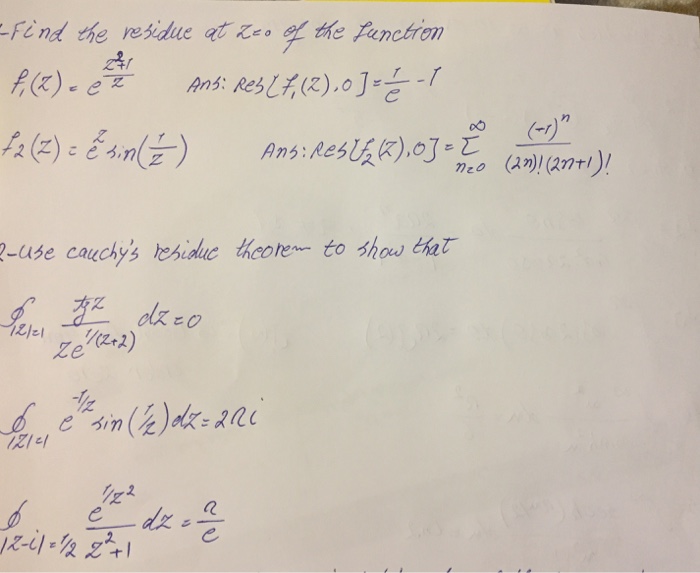 -Find the residue at z=0 of the function
f₁(z) = e^((z²+1)/z) Ans: Res[f₁(z), 0] = 1/e - 1
f₂(z) = e^z sin(1/z) Ans: Res[f₂(z), 0] = Σ_{n=0}^{∞} (-1)ⁿ / ((2n)! (2n+1)!)
2-Use cauchy's residue theorem to show that
∮_{|z|=1} tgz / (z e^(1/(z+2))) dz = 0
∮_{|z|=1} e^(-1/z) sin(1/z) dz = 2πi
∮_{|z-i|=1/2} e^(1/z²) / (z²+1) dz = π/e